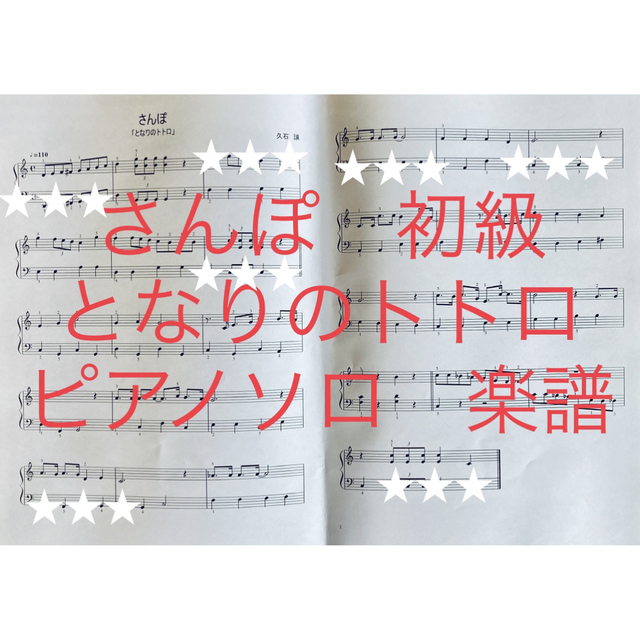 さんぽ
「となりのトトロ」
久石 譲
♩=110
さんぽ 初級
となりのトトロ
ピアノソロ 楽譜